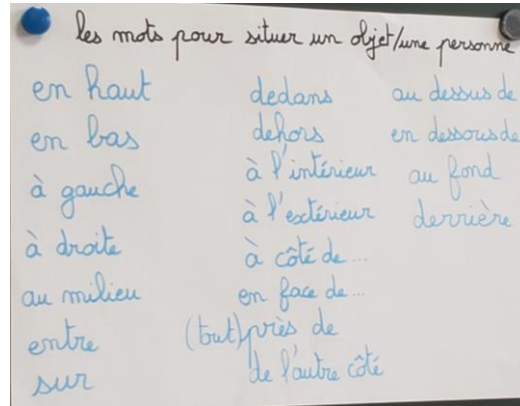 les mots pour situer un objet/une personne
en haut
en bas
à gauche
à droite
au milieu
entre
sur
dedans
dehors
à l'intérieur
à l'extérieur
à côté de ...
en face de ...
(tout) près de
de l'autre côté
au dessus de
en dessous de
au fond
derrière